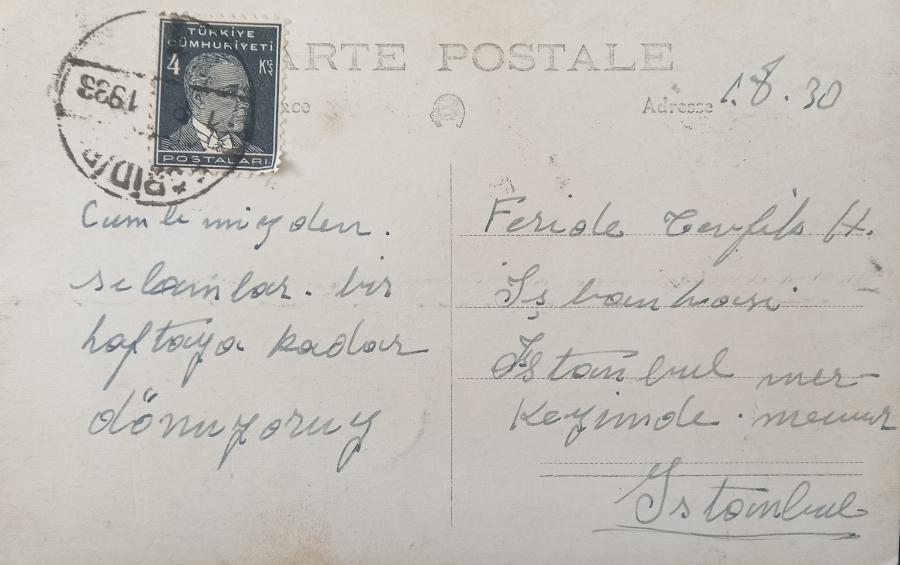 TÜRKİYE
CÜMHURİYETİ
4 Kş
POSTALARI
1933
CARTE POSTALE
Adresse 1.8.30
Cumlemizden.
selamlar. bir
haftaya kadar
dönuyoruz
Feride Tevfik H.
İş bankasi
İstanbul mer-
kezinde. memur
Istanbul